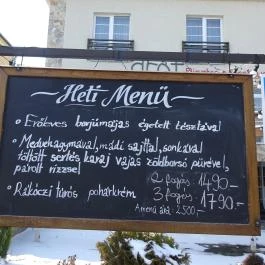 Heti Menü
• Erőleves borjúmájas égetett tésztával
• Medvehagymával, mádi sajttal, sonkával
töltött sertés karaj vajas zöldborsó pürével,
párolt rizzsel
2 fogás 1490.-
• Rákóczi túrós pohárkrém
3 fogás 1790.-
A menü ára: 2500.-